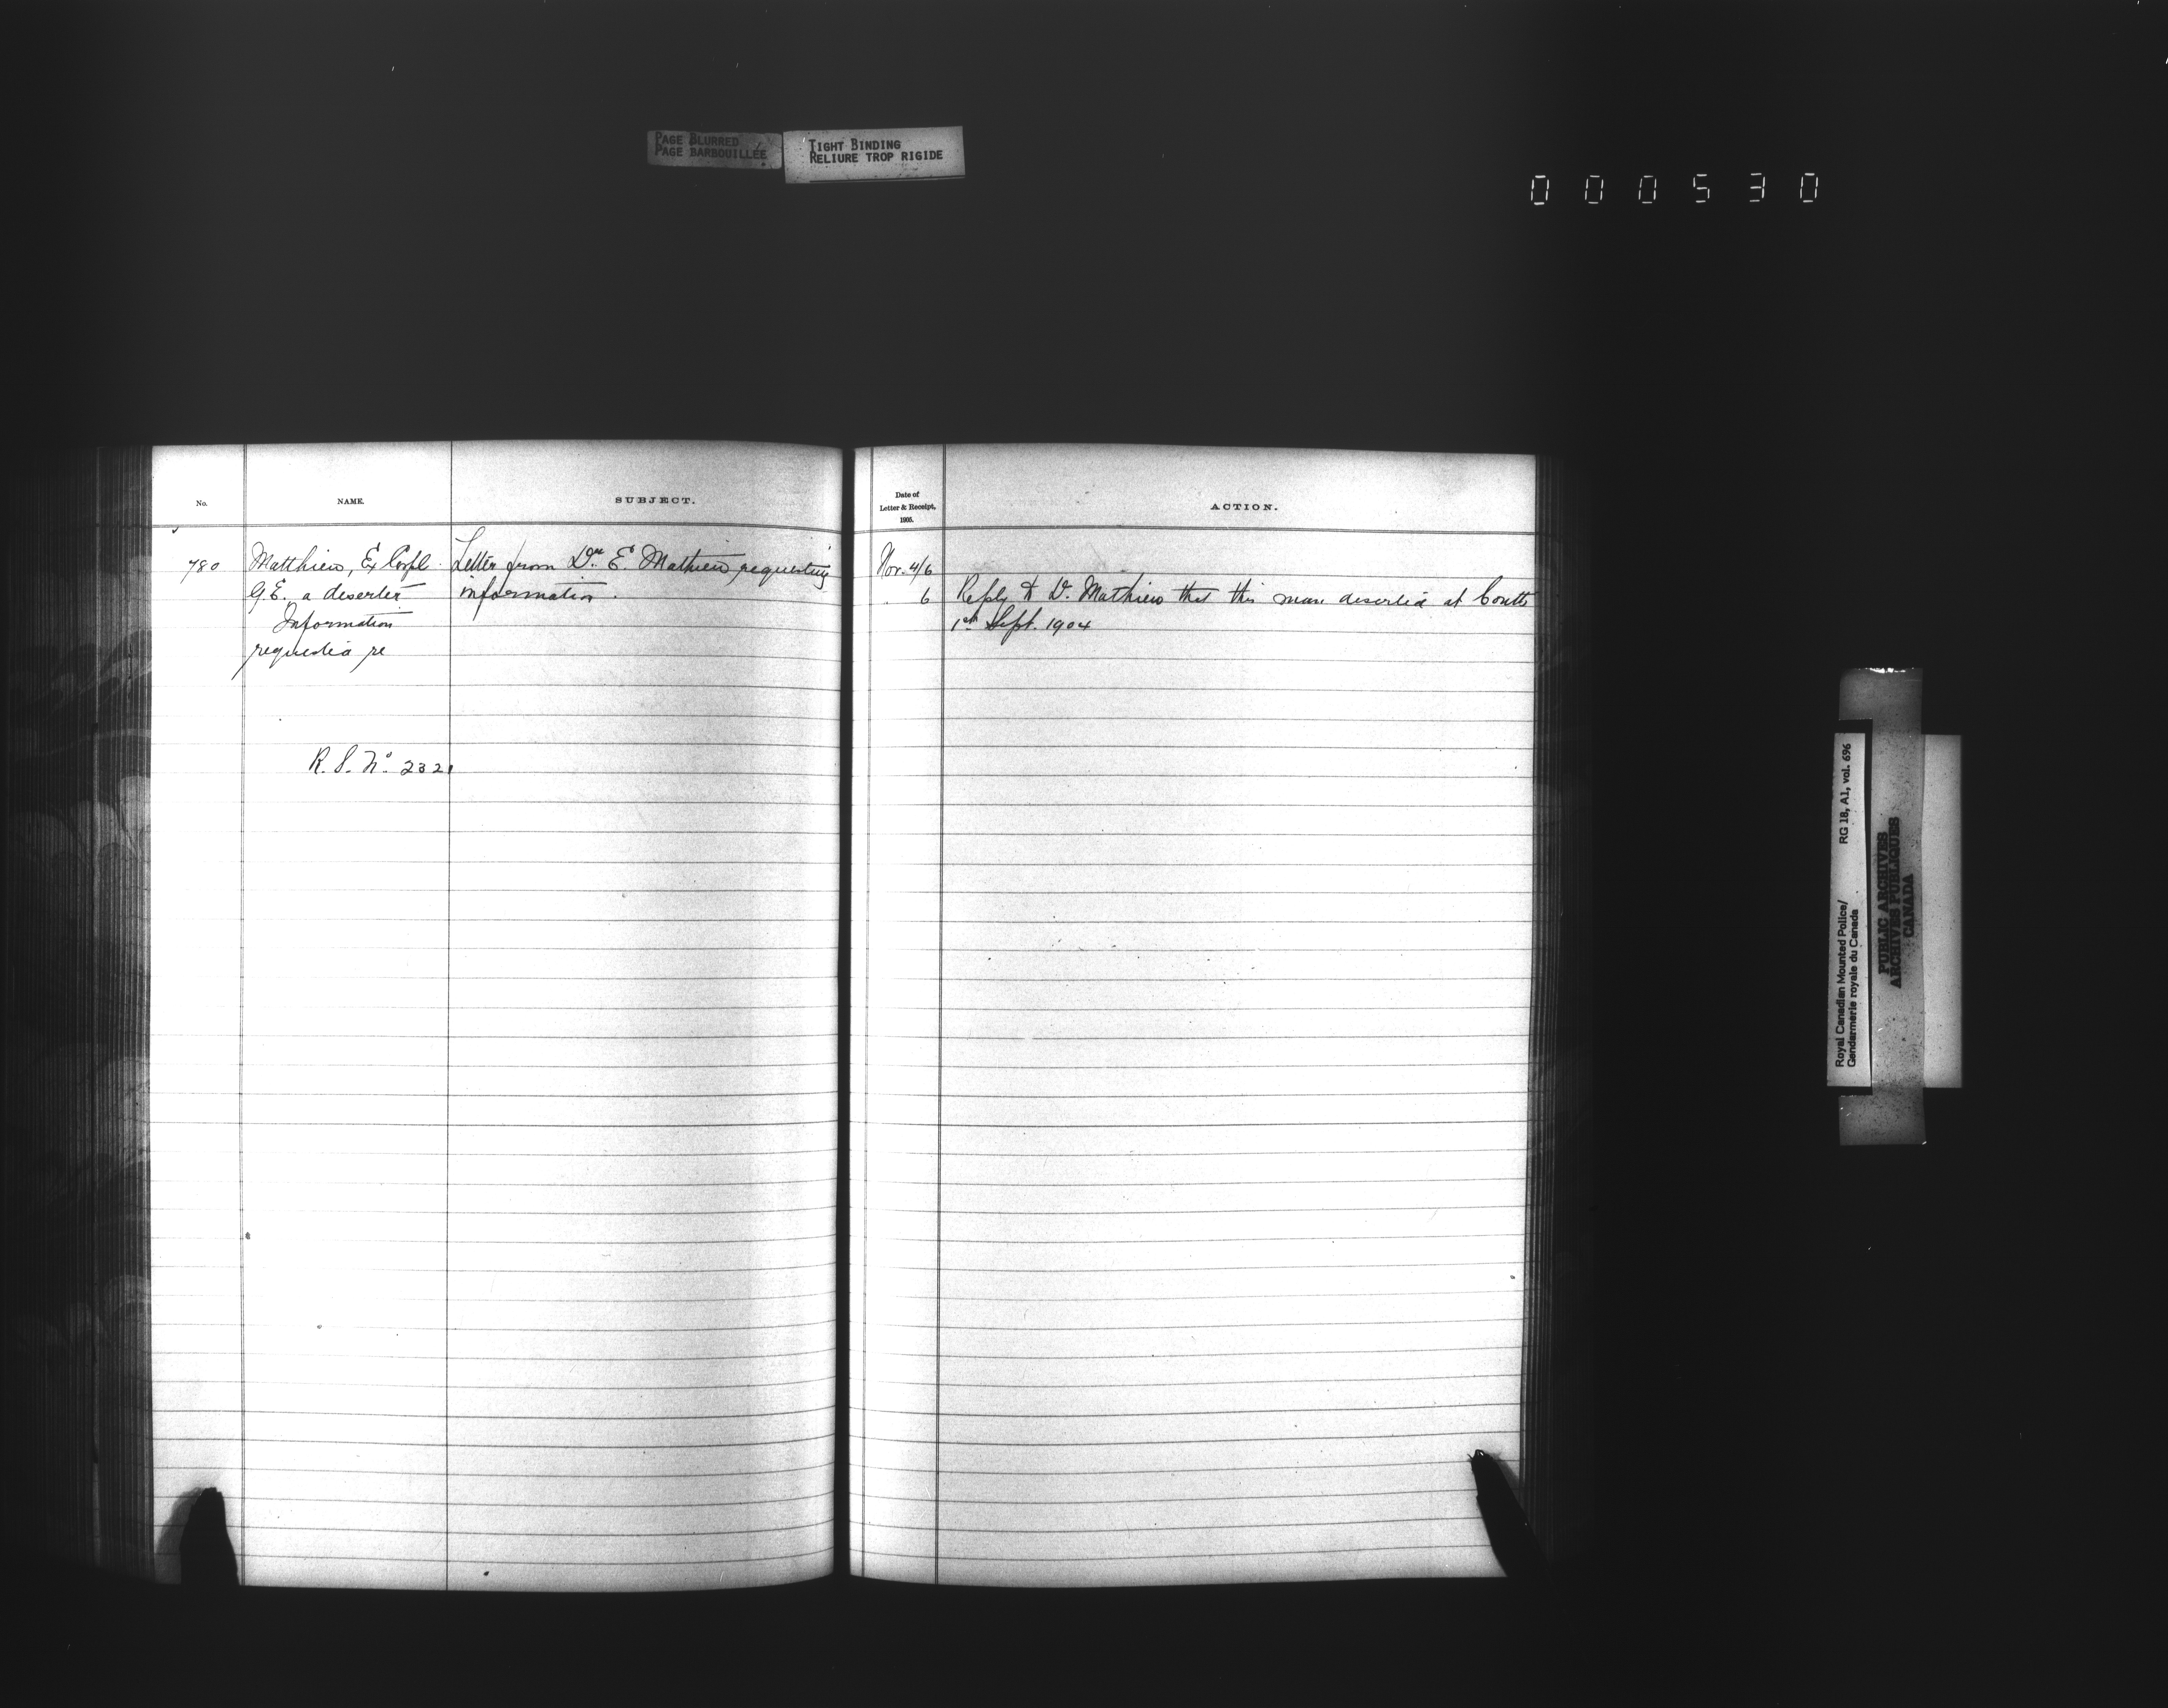 PAGE BLURRED
PAGE BARBOUILLÉE
TIGHT BINDING
RELIURE TROP RIGIDE
000530
No. NAME. SUBJECT.
780 Matthieu, Ex Corpl. Letter from Dr. E. Mathieu requesting
G.E. a deserter information.
Information
requested re
R. S. No. 2321
Date of
Letter & Receipt,
1905.
ACTION.
Nov. 4/6
6 Reply to Dr. Mathieu that this man deserted at Coutts
1st Sept. 1904
Royal Canadian Mounted Police/ RG 18, A1, vol. 696
Gendarmerie royale du Canada
PUBLIC ARCHIVES
ARCHIVES PUBLIQUES
CANADA